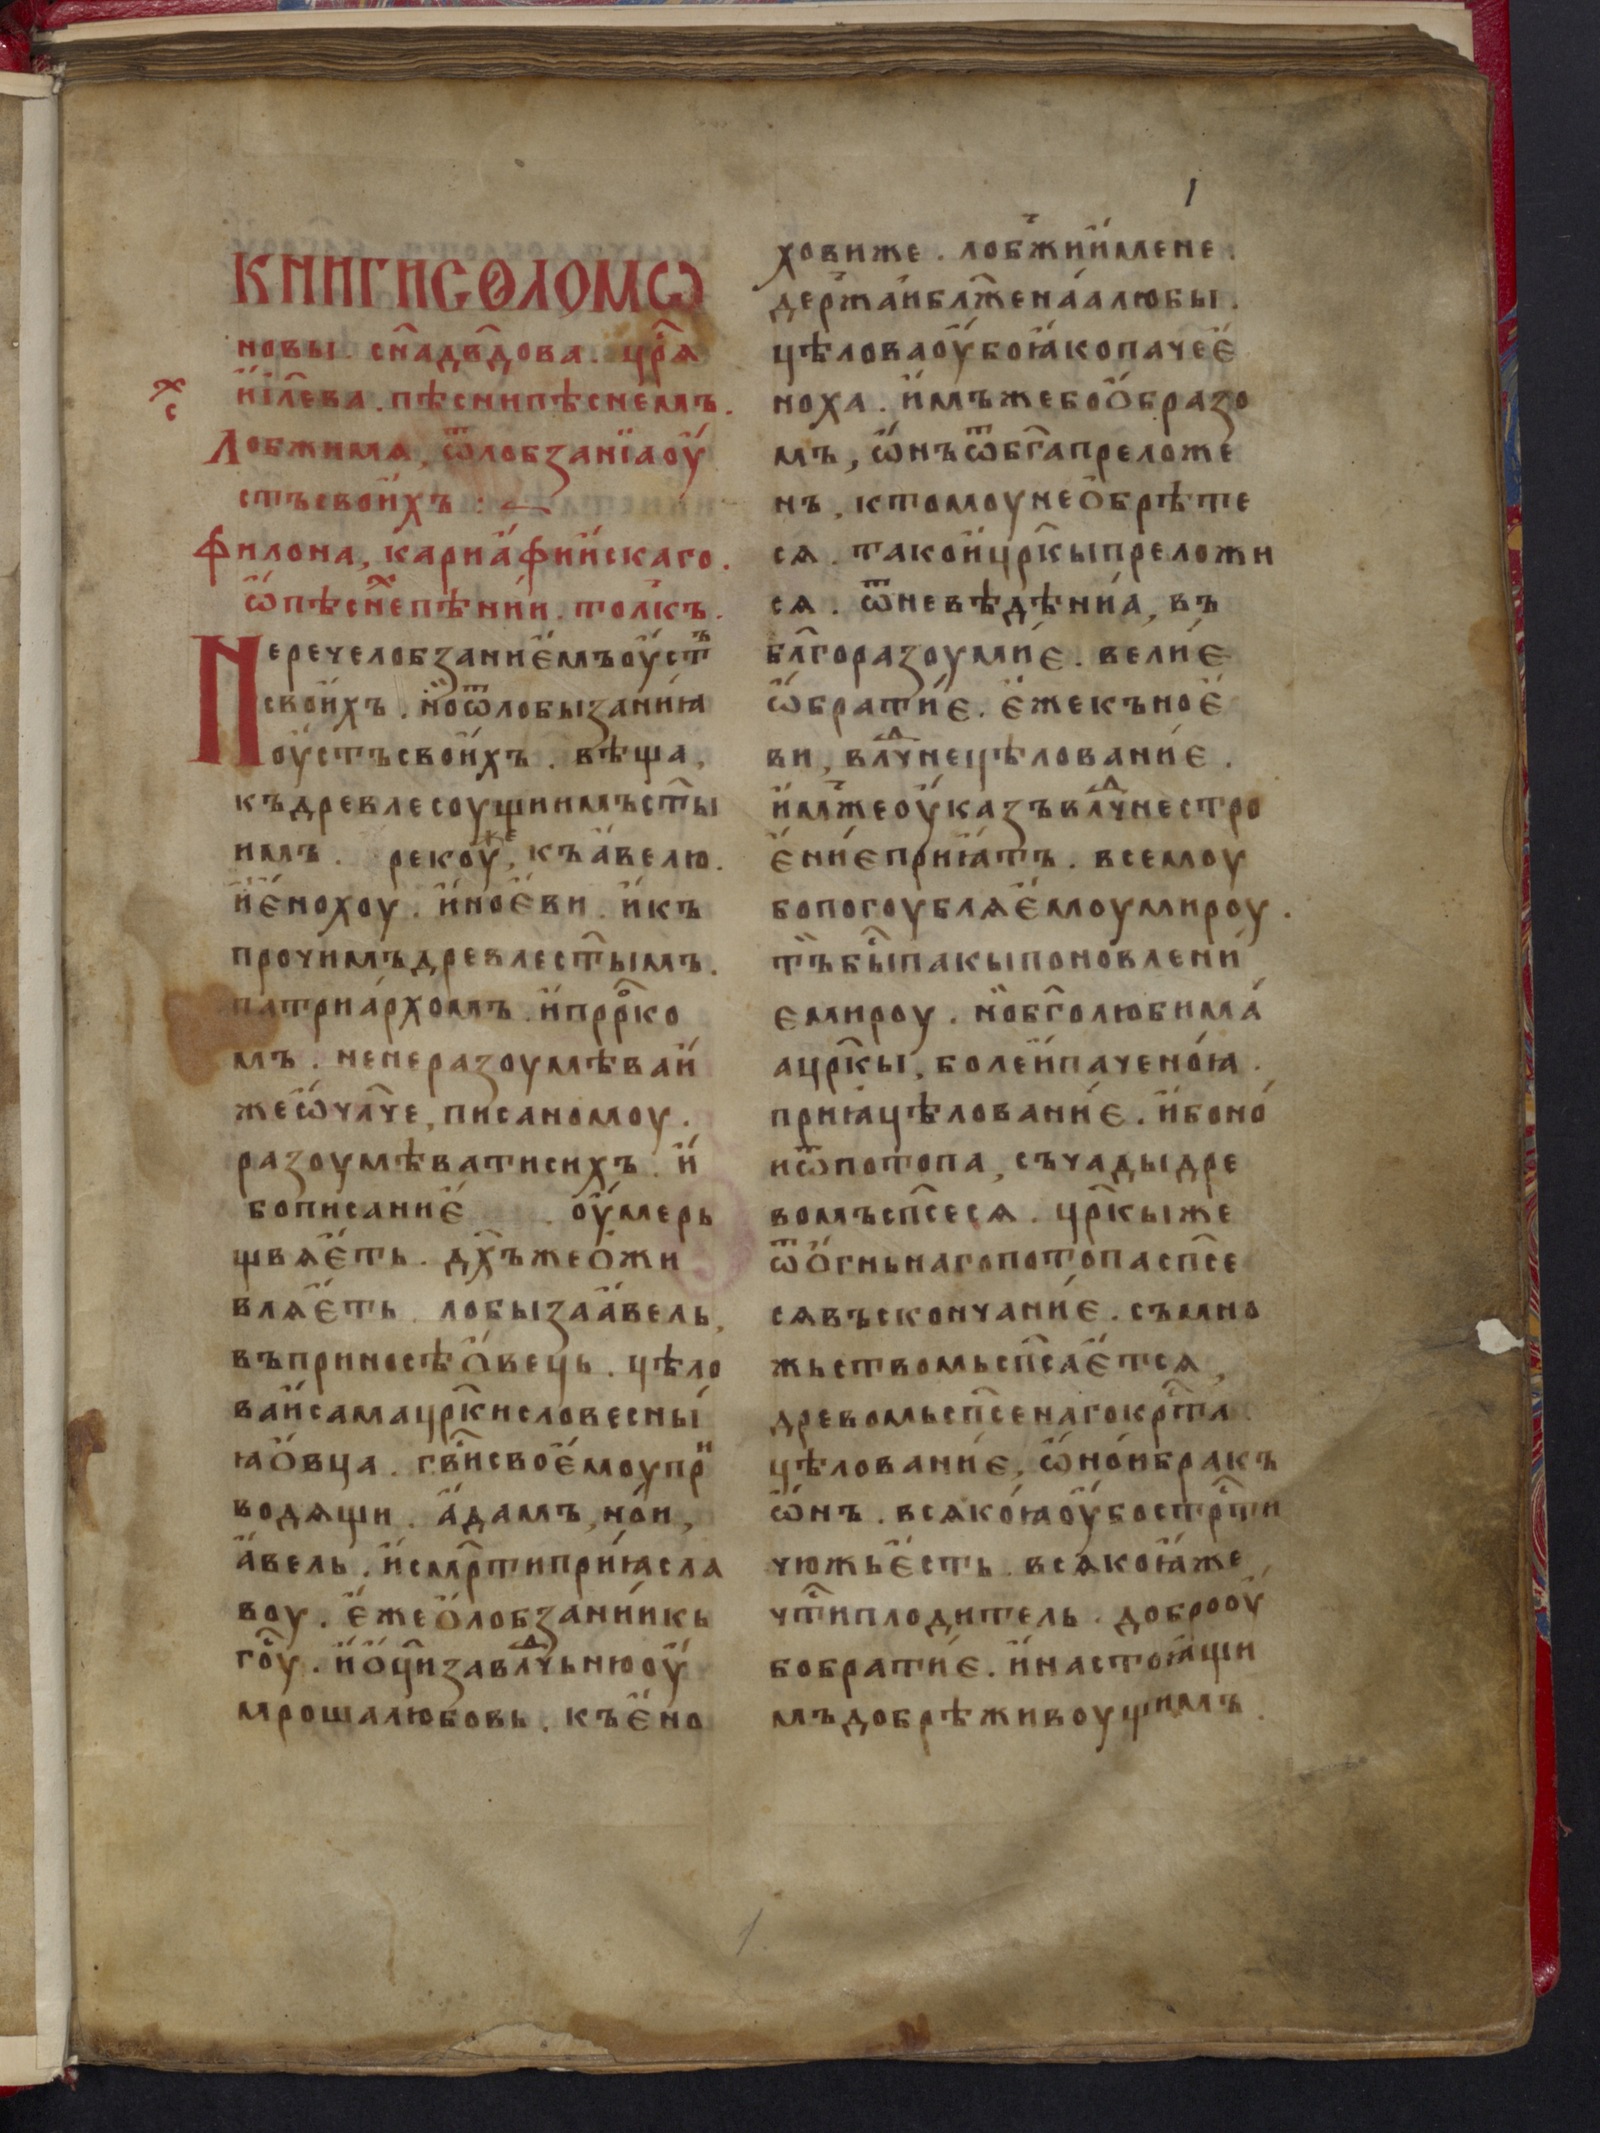 1
КНИГИСѲЛОМѠ
новы. сн҃адв҃дова. цр҃ѧ
ӥіл҃ева. пѣснипѣснемъ.
х҃с
Лобжимѧ, ѿлобзанїаоу
стъсвоихъ :
филона, карпафиискаго.
ѡпѣсн҃епѣнии. толкъ.
Неречелобзаниемъоустъ
своихъ. ноѿлобызаниꙗ
оустъсвоихъ. вѣща,
къдревлесоущиимъст҃ы
имъ. рекоуже, къавелю.
иенохоу. иноеви. икъ
прочимъдревлест҃ымъ.
патриархомъ. ипрр҃ко
мъ. ненеразоумѣваи
жеѡчл҃че, писаномоу.
разоумѣватисихъ. и
бописание оумерь
щвѧеть. дх҃ъжеѻжи
влѧеть. лобызаавель,
въприносѣѻвець. цѣло
ваисамацр҃кисловесны
ꙗѻвца. гв҃исвоемоупри
водѧщи. адамъ, нои,
авель. исмр҃типриꙗсла
воу. ежеѻлобзаниикь
го҃у. иѻц҃изавлⷣчьнюоу
мрошалюбовь. къено
ховиже. лобжииимене.
держаиблж҃енааалюбы.
цѣловаоубоꙗкопачее
ноха. имъжебоѻбразо
мъ, ѡнъѿбг҃апреложе
нъ, ктомоунеѻбрѣте
сѧ. такоицр҃кыпреложи
сѧ. ѿневѣдѣниа, въ
бл҃горазоумие. велие
ѡбратие. ежекъное
ви, влⷣчнецѣлование.
имжеоуказъвлⷣчнестро
ениеприꙗтъ. всемоу
бопогоублѧемоумироу.
тъбы҃пакыпоновлени
емироу. нобг҃олюбима
ацр҃кы, болеипаченоꙗ.
приꙗцѣлование. ибоно
иѿпотопа, съчадыдре
вомъсп҃сесѧ. цр҃кыже
ѿѻгньнагопотопасп҃се
сѧвъскончание. съмно
жьствомьсп҃саетсѧ,
древомьсп҃сенагокр҃та.
цѣлование, ѡноибракъ
ѡнъ. всѧкоꙗоубостр҃ти
чюжьесть. всѧкоꙗже
чт҃иплодитель. доброоу
бобратие. инастоꙗщи
мъдобрѣживоущимъ.
1